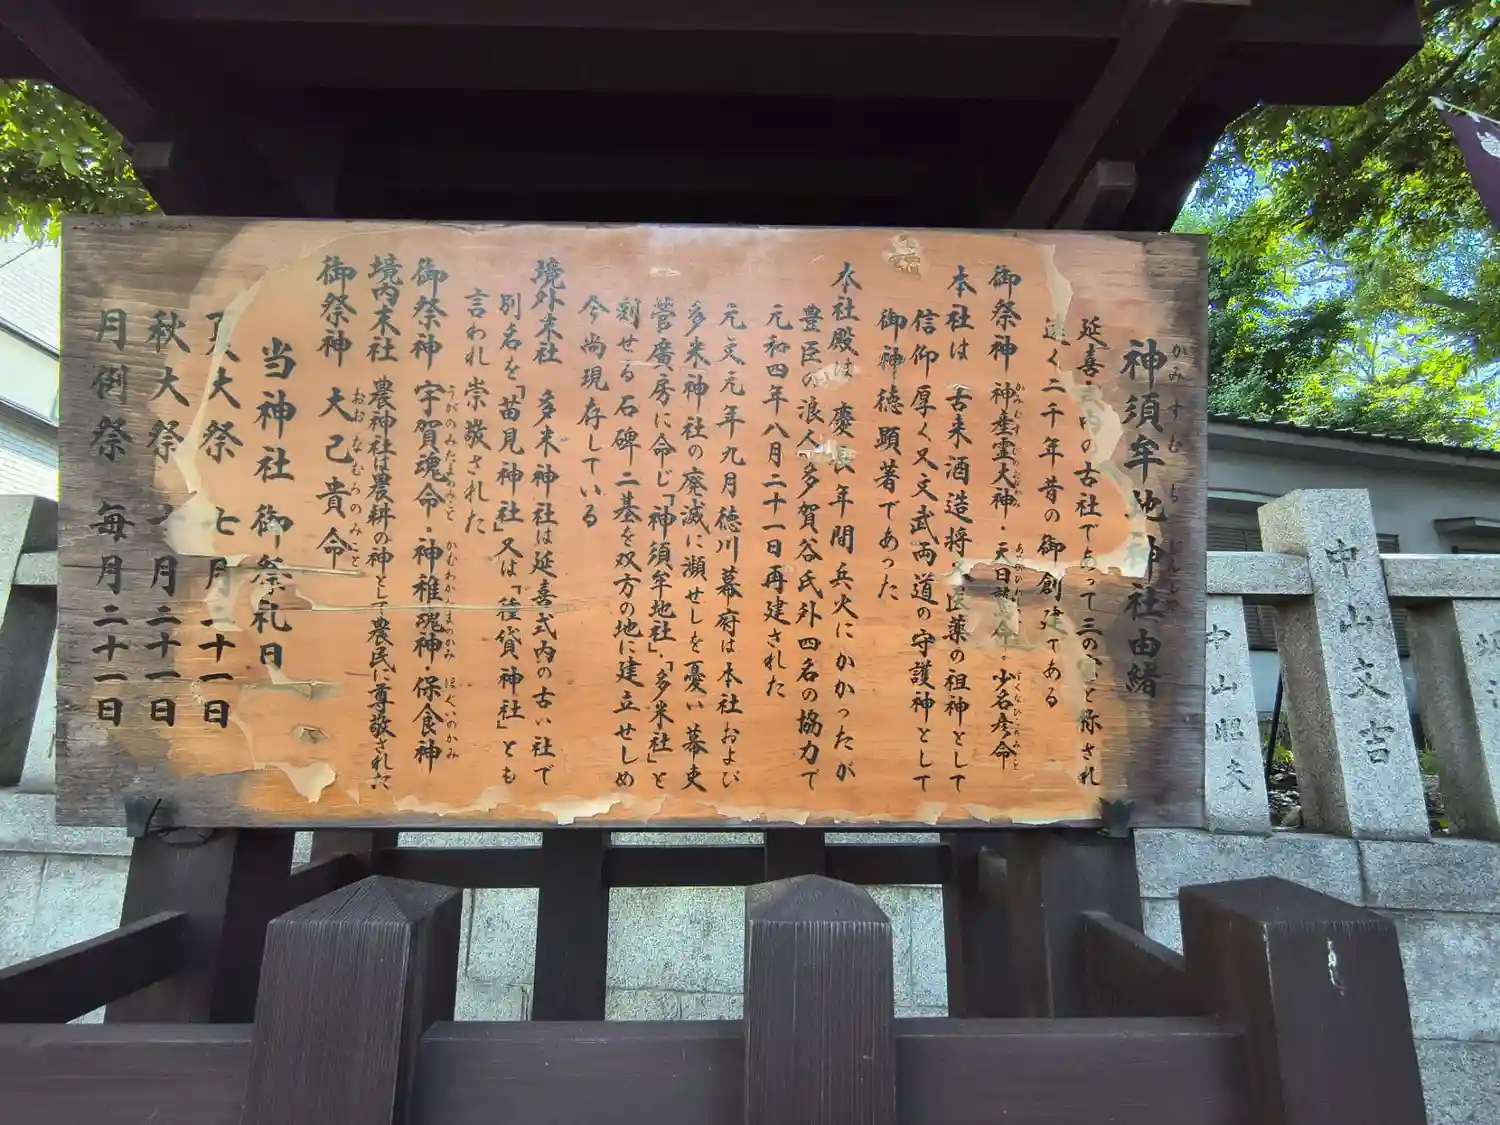 神須牟地神社由緒
かみすむちじんじゃ
延喜式内の古社であって三の宮と称され
遠く二千年昔の御創建である
御祭神 神産霊大神・天日鷲命・少名彦命
本社は 古来酒造将又医薬の祖神として
信仰厚く又文武両道の守護神として
御神徳顕著であった
本社殿は 慶長年間兵火にかかったが
豊臣の浪人多賀谷氏外四名の協力で
元和四年八月二十一日再建された
元文元年九月徳川幕府は本社および
多米神社の廃滅に瀕せしを憂い幕吏
菅廣房に命じ「神須牟地社」・「多米社」と
刻せる石碑二基を双方の地に建立せしめ
今尚現存している
境外末社 多米神社は延喜式内の古い社で
別名を「苗見神社」又は「 貸神社」とも
言われ崇敬された
御祭神 宇賀魂命・神稚魂神・保食神
うがのみたまのみこと かむわかむすまのかみ
境内末社 農神社は農耕の神として農民に尊敬された
御祭神 大己貴命
おおなむちのみこと
当神社 御祭礼日
大祭 七月二十一日
秋大祭 十月二十一日
月例祭 毎月二十一日
中山文吉
中山